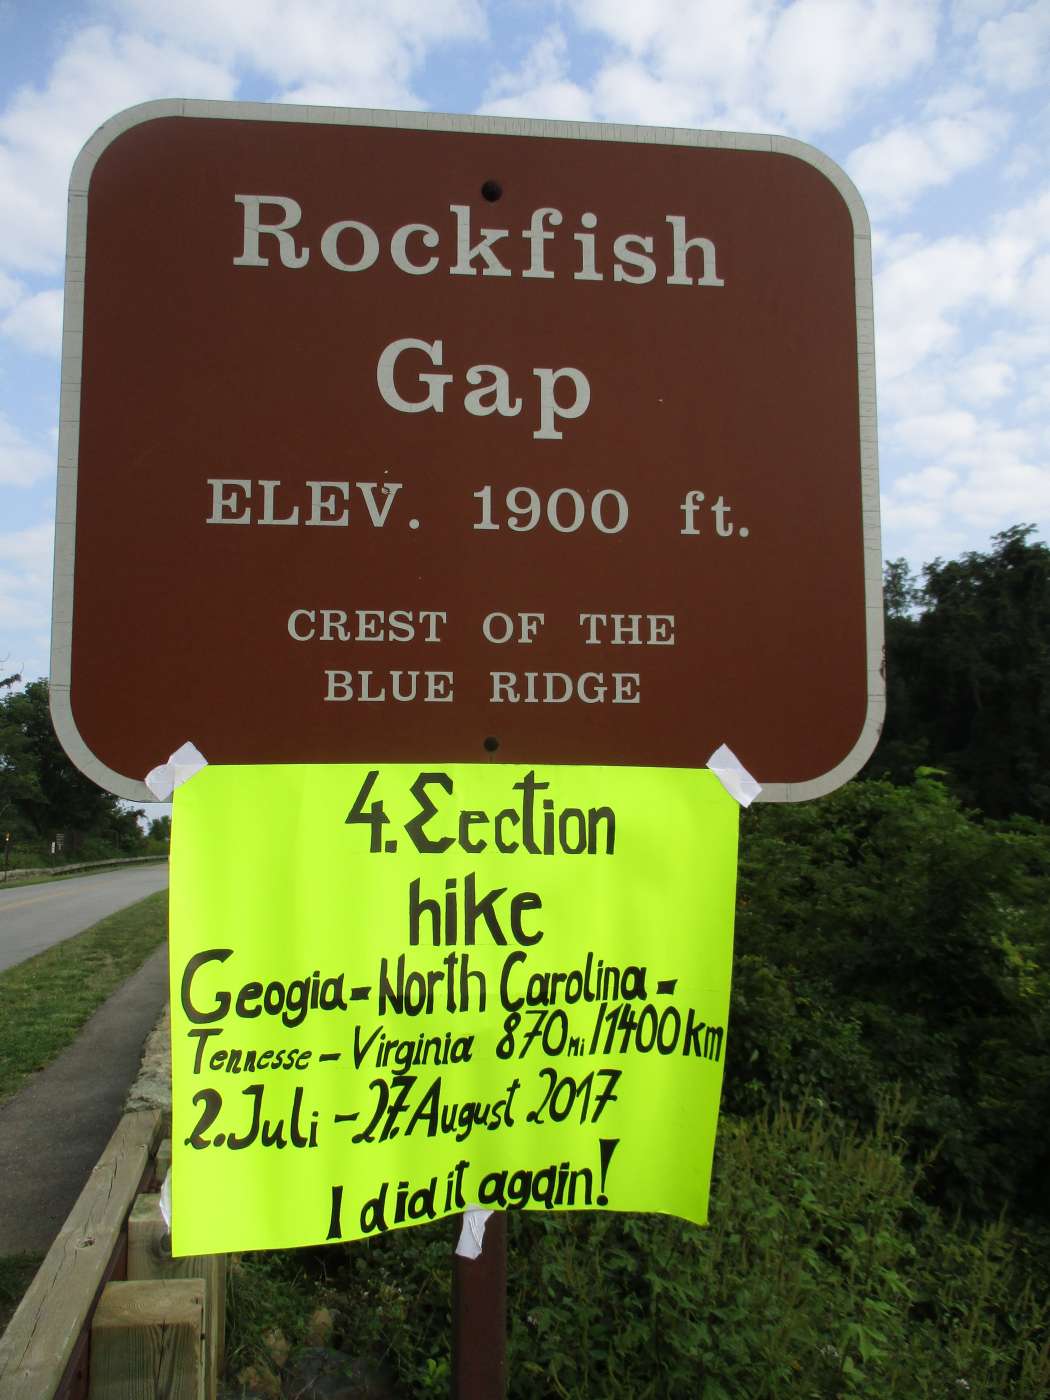 Rockfish
Gap
ELEV. 1900 ft.
CREST OF THE
BLUE RIDGE
4. Section
hike
Geogia - North Carolina -
Tennesse - Virginia 870 mi / 1400 km
2. Juli - 27. August 2017
I did it again!